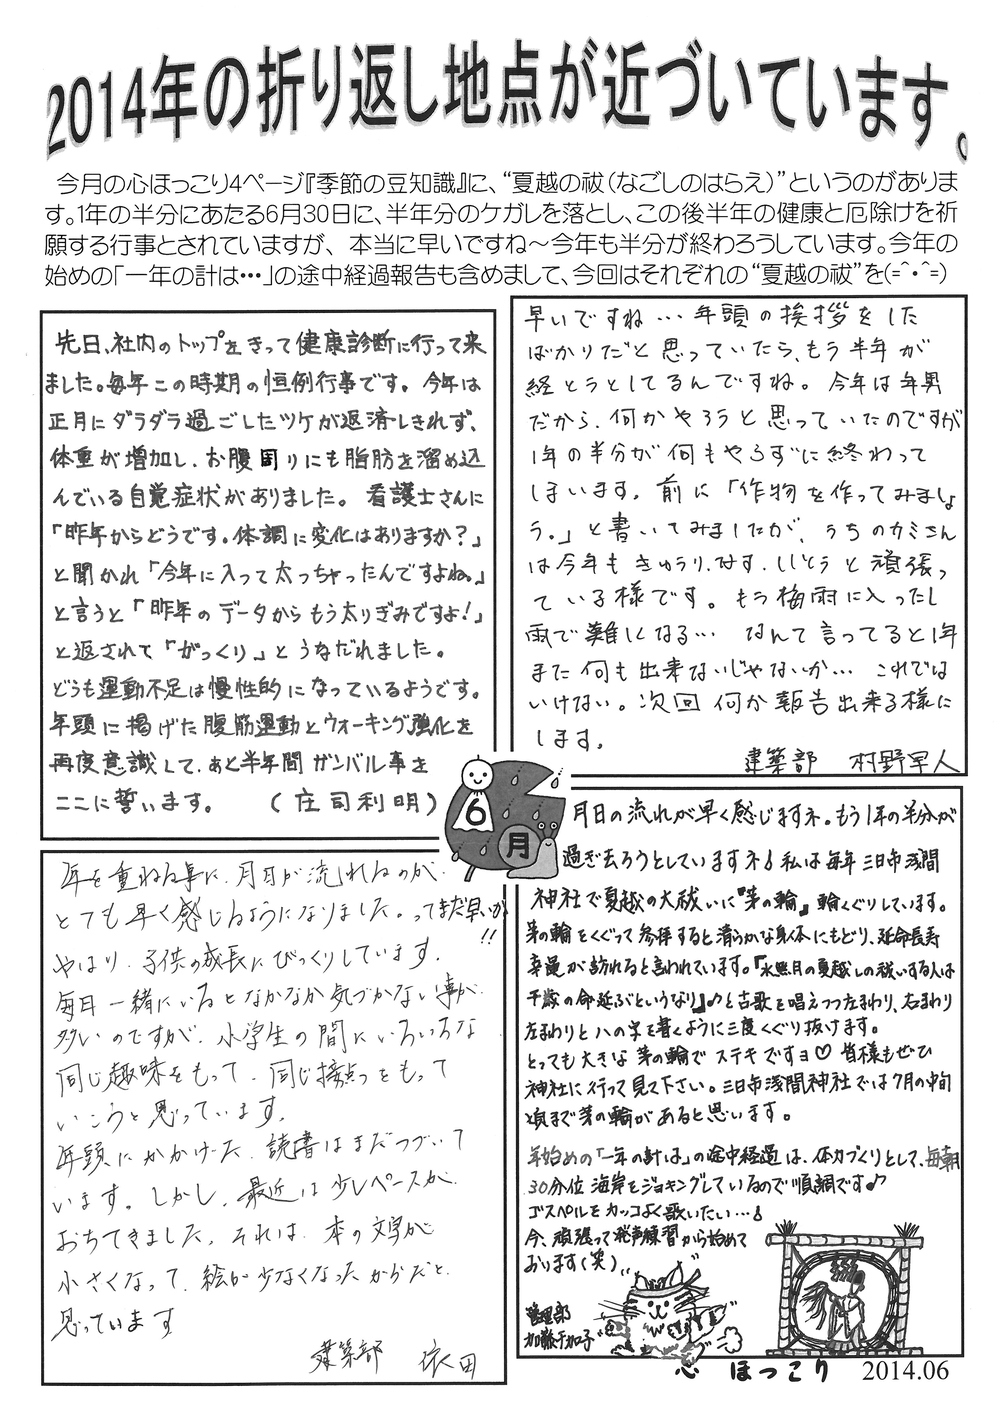 2014年の折り返し地点が近づいています。
今月の心ほっこり4ページ『季節の豆知識』に、“夏越の祓（なごしのはらえ）”というのがありま
す。1年の半分にあたる6月30日に、半年分のケガレを落とし、この後半年の健康と厄除けを祈
願する行事とされていますが、 本当に早いですね～今年も半分が終わろうしています。今年の
始めの「一年の計は・・・」の途中経過報告も含めまして、今回はそれぞれの“夏越の祓”を(=^・^=)
先日、社内のトップをきって健康診断に行って来
ました。毎年この時期の恒例行事です。今年は
正月にダラダラ過ごしたツケが返済しきれず、
体重が増加し、お腹周りにも脂肪を溜め込
んでいる自覚症状がありました。看護士さんに
「昨年からどうです。体調に変化はありますか？」
と聞かれ「今年に入って太っちゃったんですよね。」
と言うと「昨年のデータからもう太りぎみですよ！」
と返されて「がっくり」とうなだれました。
どうも運動不足は慢性的になっているようです。
年頭に掲げた腹筋運動とウォーキング強化を
再度意識して、あと半年間ガンバル事を
ここに誓います。 （庄司利明）
早いですね…年頭の挨拶をした
ばかりだと思っていたら、もう半年が
経とうとしてるんですね。今年は年男
だから、何かやろうと思っていたのですが
1年の半分が何もやらずに終わって
しまいます。前に「作物を作ってみましょ
う。」と書いてみましたが、うちのカミさん
は今年もきゅうり、なす、ししとうと頑張っ
ている様です。もう梅雨に入ったし
雨で難しくなる… なんて言ってると1年
また何も出来ないじゃないか… これでは
いけない。次回何か報告出来る様に
します。
建築部 村野早人
6
月
年を重ねる事に、月日が流れるのが、
とても早く感じるようになりました。ってまだ早いが!!
やはり、子供の成長にびっくりしています。
毎日一緒にいるとなかなか気づかない事が
多いのですが、小学生の間にいろいろな
同じ趣味をもって、同じ接点をもって
いこうと思っています。
年頭にかかげた、読書はまだつづいて
います。しかし、最近は少しペースが、
おちてきました。それは、本の文字が
小さくなって、絵が少なくなったからだと
思っています
建築部 依田
月日の流れが早く感じますネ。もう1年の半分が
過ぎ去ろうとしていますネ♪私は毎年三日市浅間
神社で夏越の大祓いに『茅の輪』輪くぐりしています。
茅の輪をくぐって参拝すると清らかな身体にもどり、延命長寿
幸運が訪れると言われています。『水無月の夏越しの祓いする人は
千歳の命延ぶというなり』♪と古歌を唱えつつ左まわり、右まわり
左まわりと八の字を書くように三度くぐり抜けます。
とっても大きな茅の輪でステキですョ♡ 皆様もぜひ
神社に行って見て下さい。三日市浅間神社では7月の中旬
頃まで茅の輪があると思います。
年始めの「一年の計は」の途中経過は、体力づくりとして、毎朝
30分位海岸をジョキングしているので順調です♪
ゴスペルをカッコよく歌いたい…♪
今、頑張って発声練習から始めて
おります(笑)
管理部
加藤千加子
心 ほっこり 2014.06